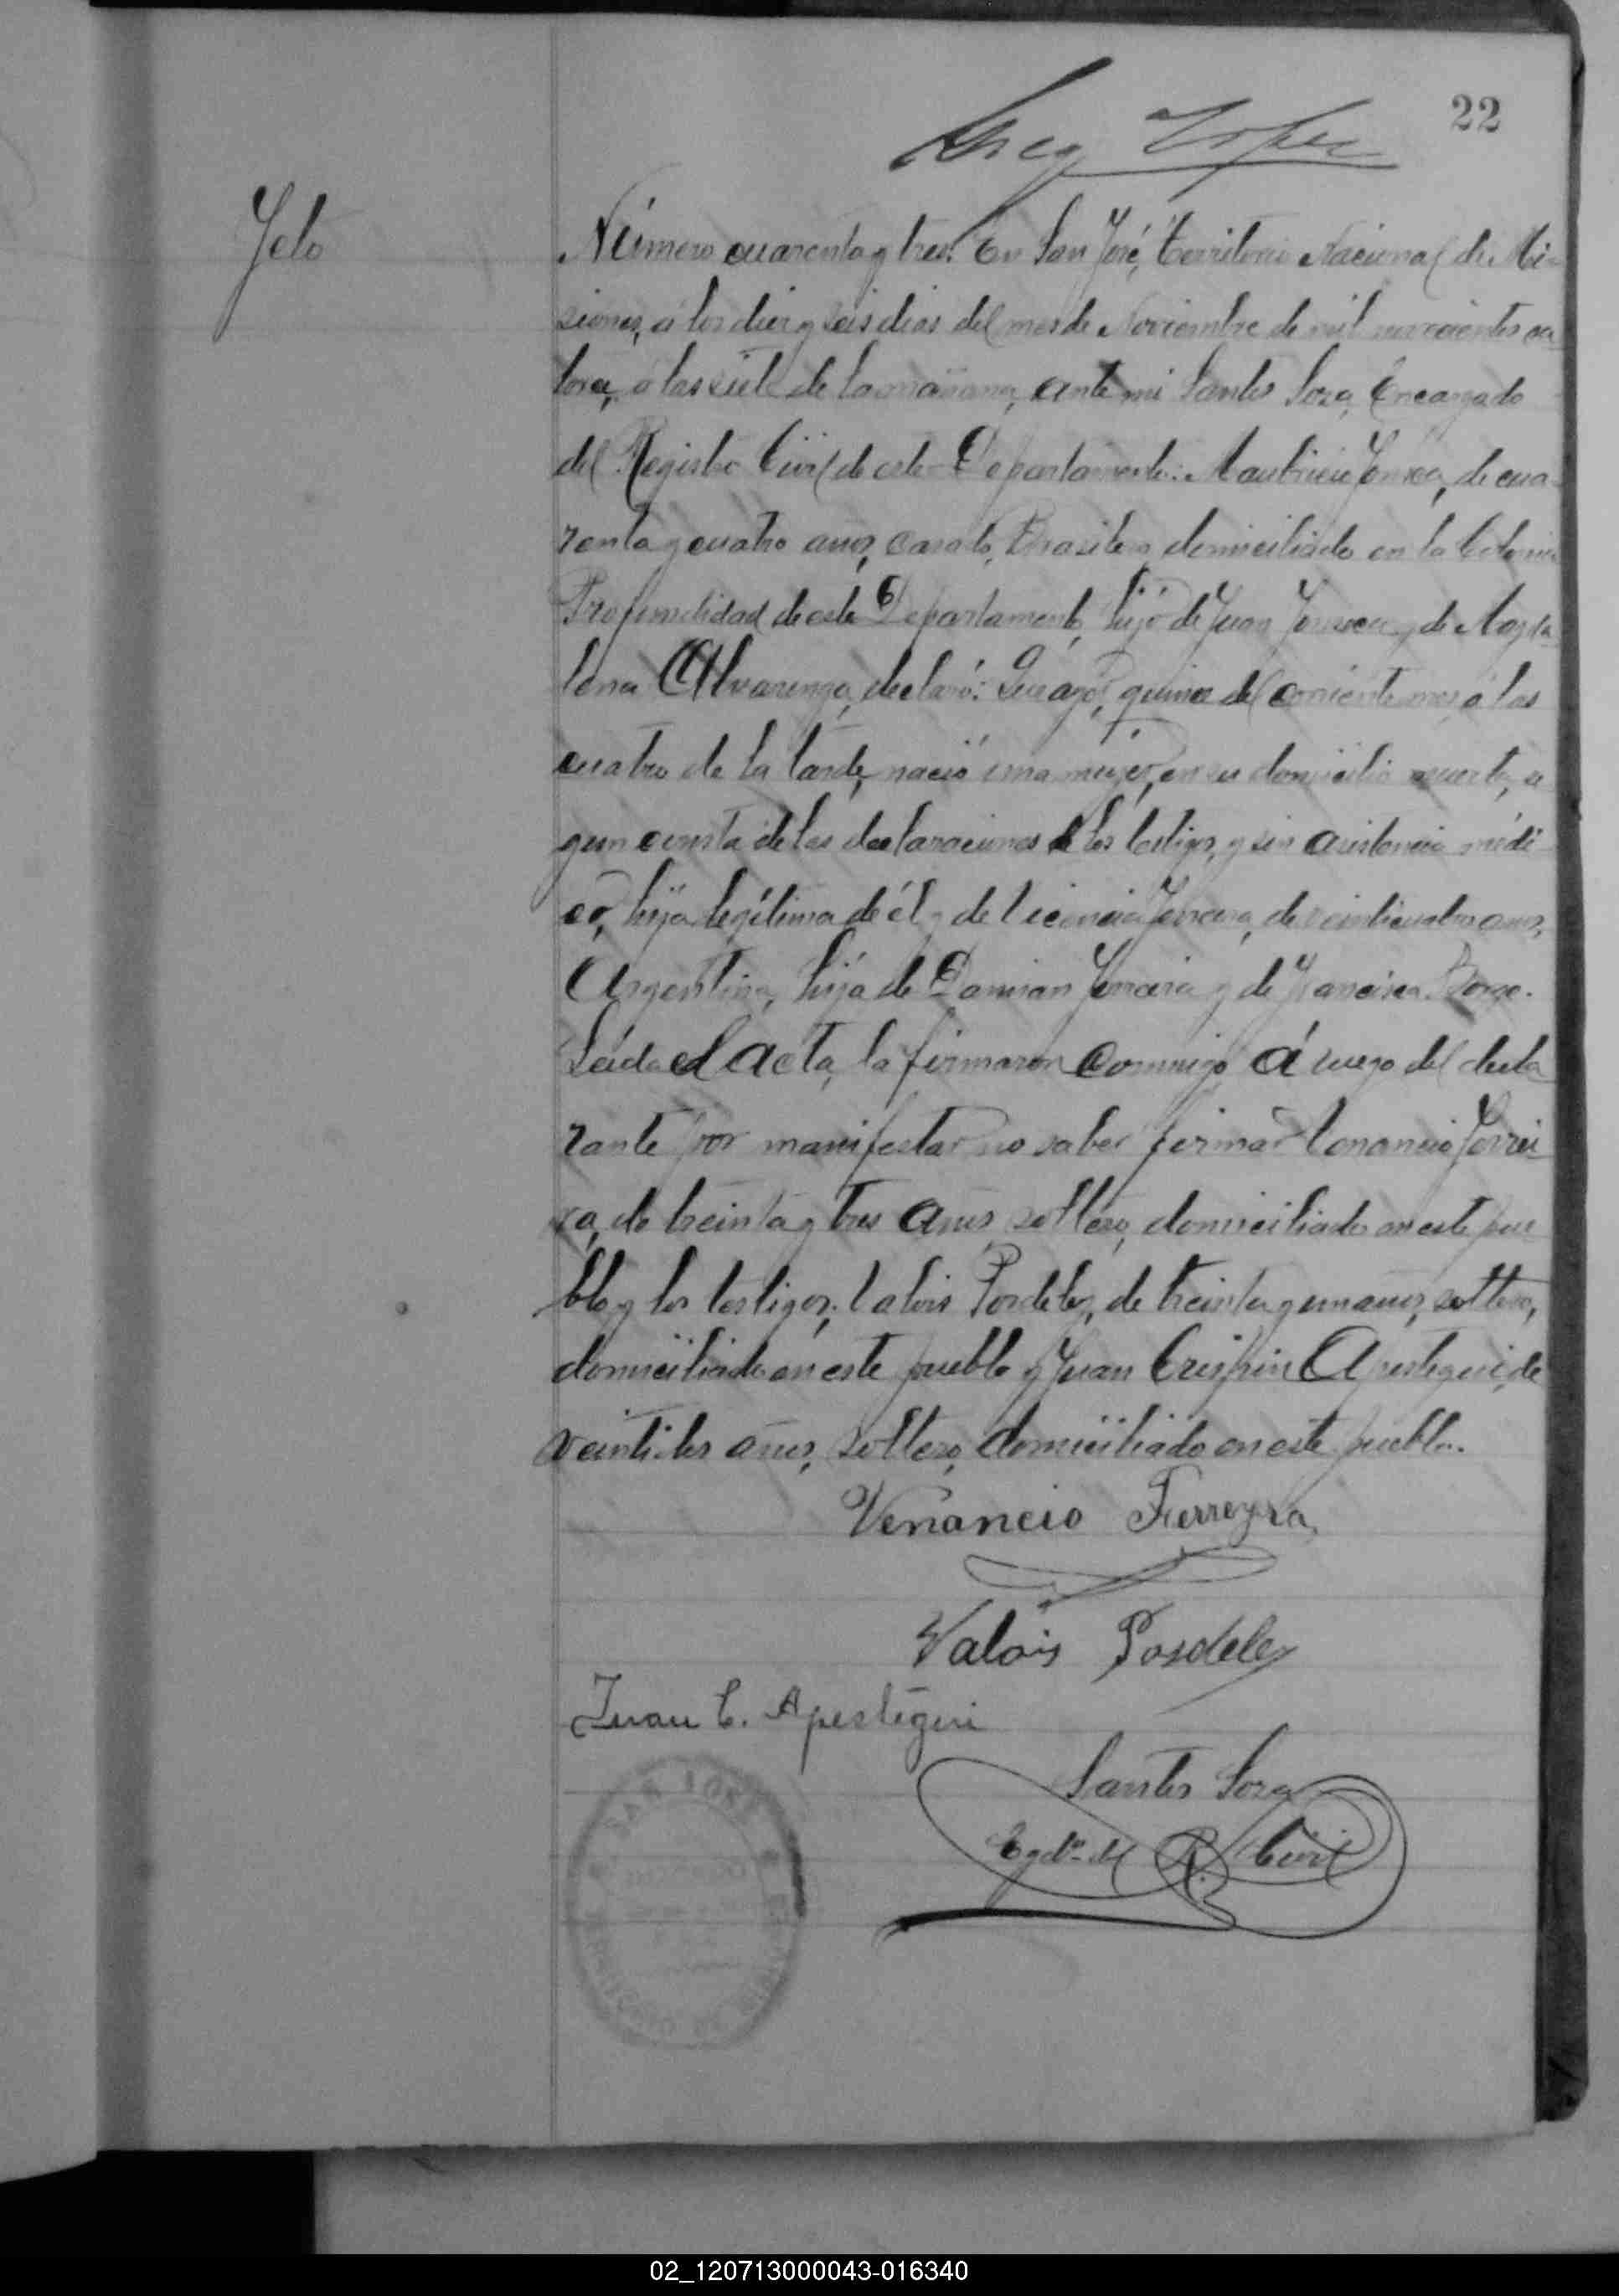 22
Feto
Número cuarenta y tres. En San José, Territorio Nacional de Mi-
siones, á los diez y seis dias del mes de Noviembre de mil novecientos ca
torce, á las siete de la mañana, ante mi Santos Soza, Encargado
del Registro Civil de este Departamento: Mauricio Fonseca, de cua-
renta y cuatro años, casado, Brasilero, domiciliado en la Colonia
Profundidad de este Departamento, hijo de Juan Fonseca y de Magda
lena Alvarenga, declaró: Que ayer, quince del corriente mes, á las
cuatro de la tarde, nació una mujer, en su domicilio muerta, se
gun consta de las declaraciones de los testigos, y sin asistencia médi
ca, hija legítima de él y de Ferreira, de veinticuatro anos,
Argentina, hija de Damian Ferreira y de Francisca
Leida el acta, la firmaron conmigo á ruego del decla
rante por manifestar no saber firmar Venancio Ferrei
ra, de treinta y tres años, soltero, domiciliado en este pue
blo y los testigos: Valois Posdeley, de treinta y un anos, soltero,
domiciliado en este pueblo y Juan Crispin Apestegui, de
veintidos años, soltero, domiciliado en este pueblo.
Venancio Ferreyra
Valois Posdeley
Juan C. Apestegui
Santos Soza
Egdo. del R. Civil
02_120713000043-016340